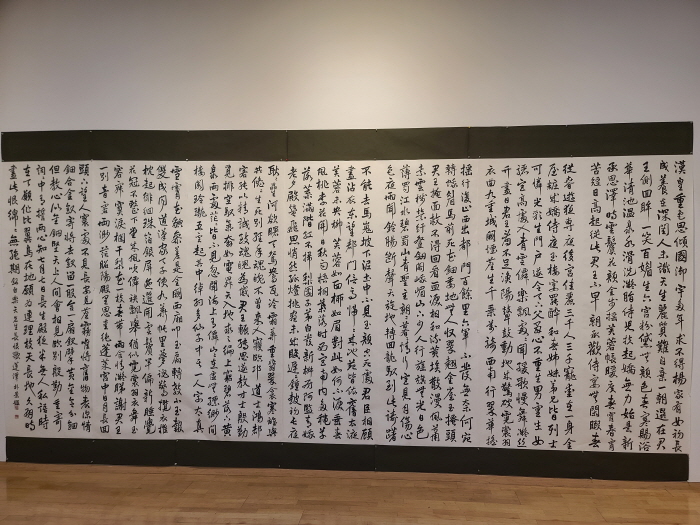 漢皇重色思傾國御宇多年求不得楊家有女初長
成養在深閨人未識天生麗質難自棄一朝選在君
王側回眸一笑百媚生六宮粉黛無顏色春寒賜浴
華清池溫泉水滑洗凝脂侍兒扶起嬌無力始是新
承恩澤時雲鬢花顏金步搖芙蓉帳暖度春宵春宵
苦短日高起從此君王不早朝承歡侍宴無閒暇春
從春遊夜專夜後宮佳麗三千人三千寵愛在一身金
屋妝成嬌侍夜玉樓宴罷醉和春姊妹弟兄皆列士
可憐光彩生門戶遂令天下父母心不重生男重生女
驪宮高處入青雲仙樂風飄處處聞緩歌慢舞凝絲
竹盡日君王看不足漁陽鼙鼓動地來驚破霓裳羽
衣曲九重城闕煙塵生千乘萬騎西南行翠華搖
搖行復止西出都門百餘里六軍不發無奈何宛
轉蛾眉馬前死花鈿委地無人收翠翹金雀玉搔頭
君王掩面救不得回看血淚相和流黃埃散漫風蕭
索雲棧縈紆登劍閣峨嵋山下少人行旌旗無光日色
薄蜀江水碧蜀山青聖主朝朝暮暮情行宮見月傷心
色夜雨聞鈴腸斷聲天旋地轉迴龍馭到此躊躇
不能去馬嵬坡下泥土中不見玉顏空死處君臣相顧
盡沾衣東望都門信馬歸歸來池苑皆依舊太液
芙蓉未央柳芙蓉如面柳如眉對此如何不淚垂春
風桃李花開日秋雨梧桐葉落時西宮南內多秋草
落葉滿階紅不掃梨園弟子白髮新椒房阿監青娥
老夕殿螢飛思悄然孤燈挑盡未成眠遲遲鐘鼓初長夜
耿耿星河欲曙天鴛鴦瓦冷霜華重翡翠衾寒誰與
共悠悠生死別經年魂魄不曾來入夢臨邛道士鴻都
客能以精誠致魂魄為感君王輾轉思遂教方士殷勤
覓排空馭氣奔如電昇天入地求之遍上窮碧落下黃
泉兩處茫茫皆不見忽聞海上有仙山山在虛無縹緲間
樓閣玲瓏五雲起其中綽約多仙子中有一人字太真
雪膚花貌參差是金闕西廂叩玉扃轉教小玉報
雙成聞道漢家天子使九華帳裡夢魂驚攬衣推
枕起徘徊珠箔銀屏迤邐開雲鬢半偏新睡覺
花冠不整下堂來風吹仙袂飄飄舉猶似霓裳羽衣舞玉
容寂寞淚闌干梨花一枝春帶雨含情凝睇謝君王
一別音容兩渺茫昭陽殿裏恩愛絕蓬萊宮中日月長回
頭下望人寰處不見長安見塵霧唯將舊物表深情
鈿合金釵寄將去釵留一股合一扇釵擘黃金合分鈿
但教心似金鈿堅天上人間會相見臨別殷勤重寄
詞詞中有誓兩心知七月七日長生殿夜半無人私語時
在天願作比翼鳥在地願為連理枝天長地久有時
盡此恨綿綿無絕期 錄白樂天先生長恨歌